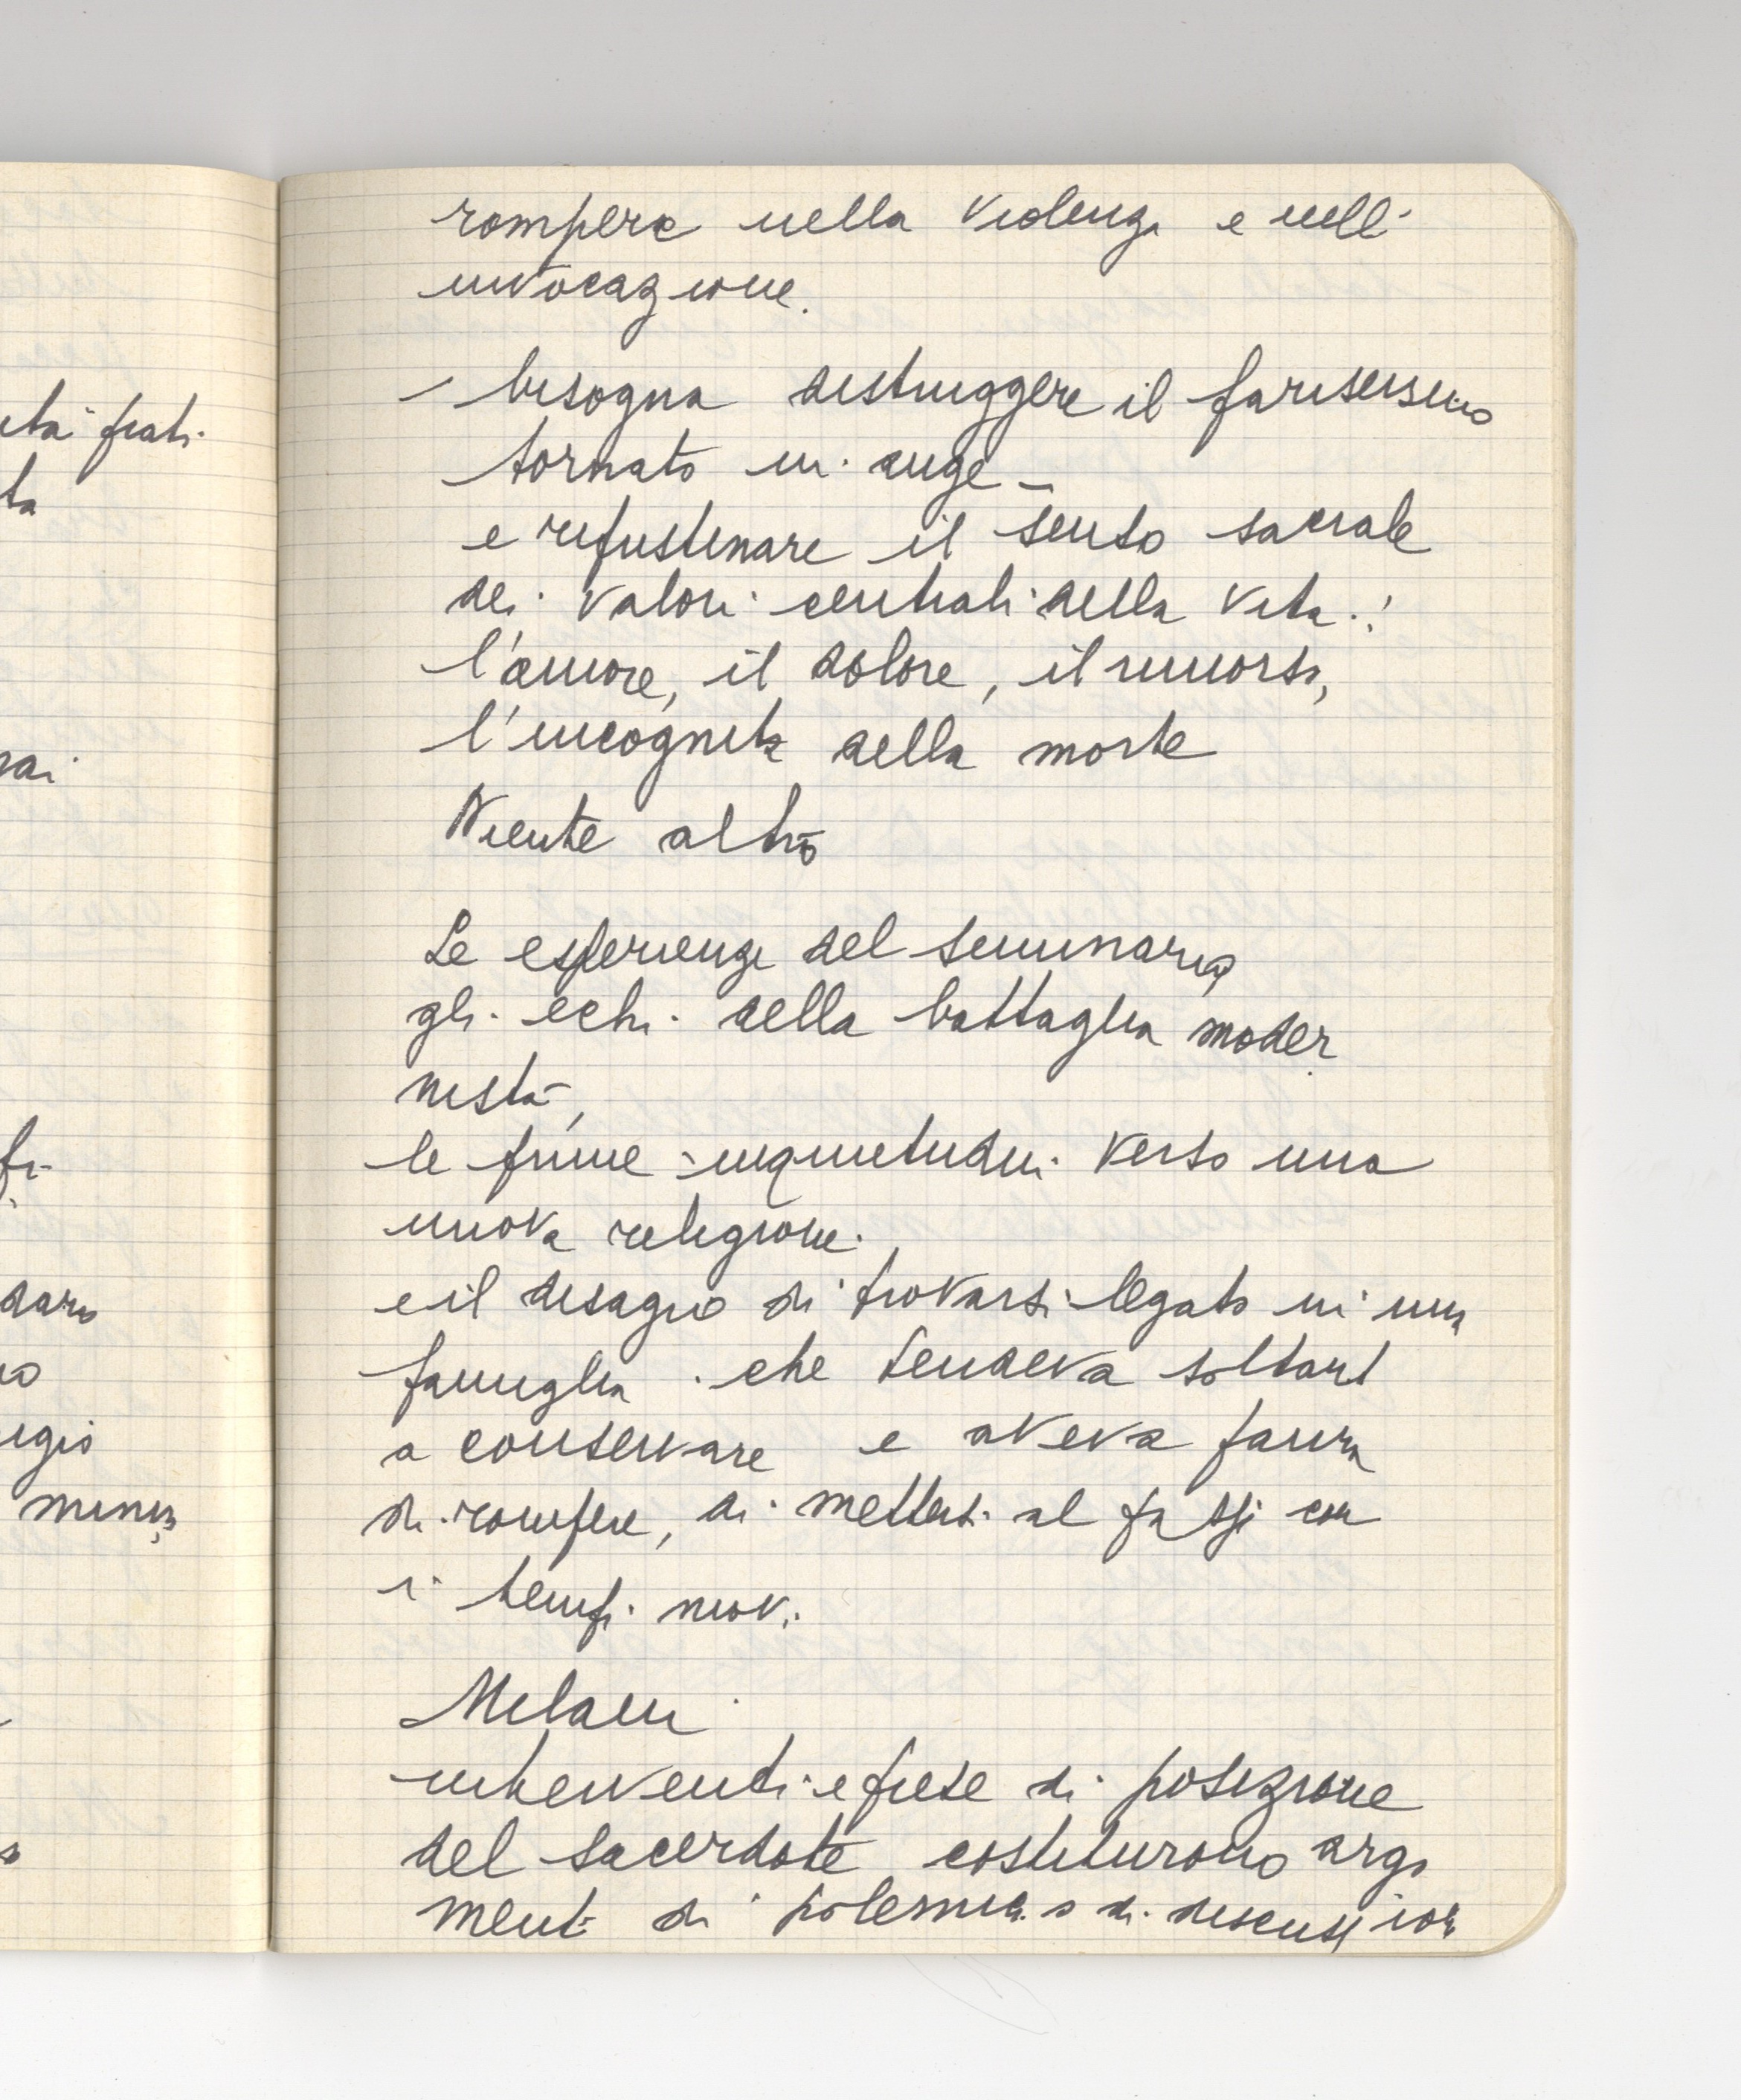 rompere nella violenza e nell'
invocazione.
- bisogna distruggere il fariseismo
tornato in auge -
e ripristinare il senso sacrale
dei valori centrali della vita:
l'amore, il dolore, il rimorso,
l'incognita della morte
Niente altro
Le esperienze del seminario,
gli echi della battaglia moder
nista,
le prime inquietudini verso una
nuova religione
e il disagio di trovarsi legato in una
famiglia che tendeva soltant
a conservare e aveva paura
di rompere, di mettersi al passo con
i tempi nuovi.
Milani
interventi e prese di posizione
del sacerdote costituirono argo
menti di polemica o di discussion
ità
ta
rai
dario